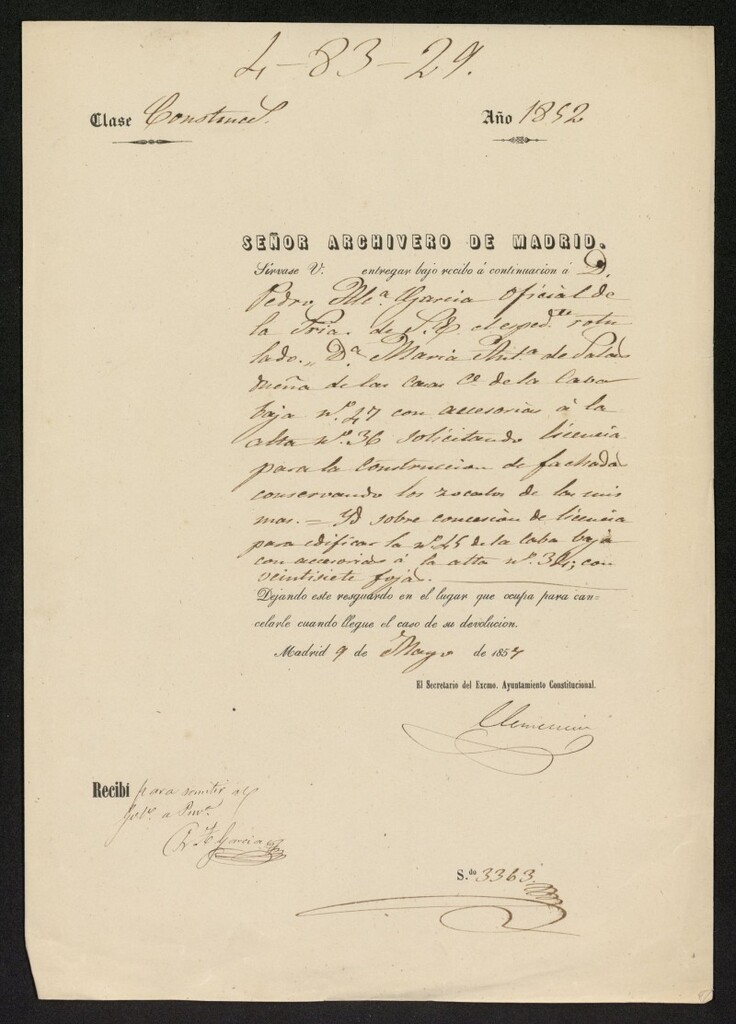 4-83-29.
Clase Construcs.
Año 1852
SEÑOR ARCHIVERO DE MADRID.
Sírvase V. entregar bajo recibo á continuacion á D.
Pedro M.ª Garcia oficial de
la Sria. de S.E. el esped.te rotu
lado. „ D.ª Maria Ant.ª de
dueña de las casas C.e de la Caba
baja n.º 47 con accesorias á la
alta n.º 36 solicitando licencia
para la construccion de fachada
conservando los zocalos de las mis
mas. = Yd sobre concesion de licencia
para edificar la n.º 45 de la Caba baja
con accesorias á la alta n.º 34; con
veintisiete fojas.
Dejando este resguardo en el lugar que ocupa para can-
celarle cuando llegue el caso de su devolucion.
Madrid 9 de Mayo de 1857
El Secretario del Excmo. Ayuntamiento Constitucional.
Clemencin
Recibí para remitir al
Gob.no a Prov.ª
Garcia
S.do 3363